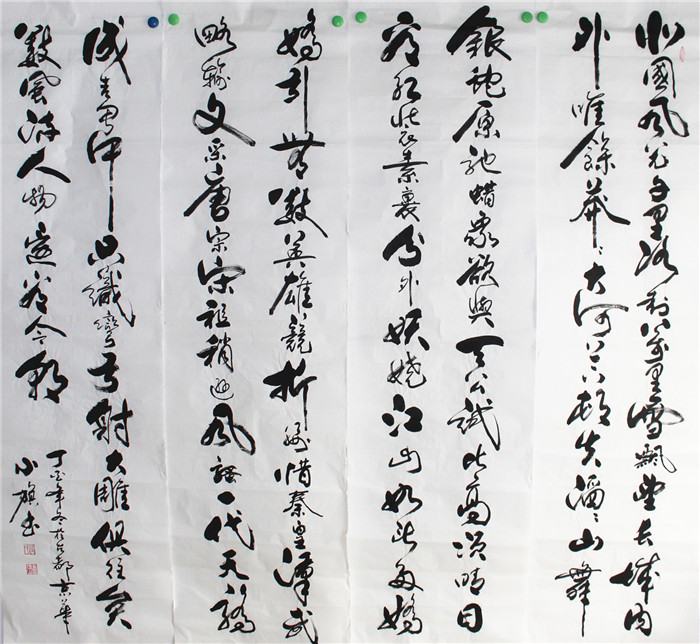 北國風光千里冰封萬里雪飄望長城內
外唯餘莽々大河上下頓失滔々山舞
銀蛇原馳蜡象欲與天公試比高須晴日
看紅裝素裹分外妖嬈江山如此多嬌
嬌引無數英雄競折腰惜秦皇漢武
略輸文采唐宗宋祖稍遜風騷一代天驕
成吉思汗只識彎弓射大雕俱往矣
數風流人物還看今朝
丁酉年冬於古都京華
小旗書